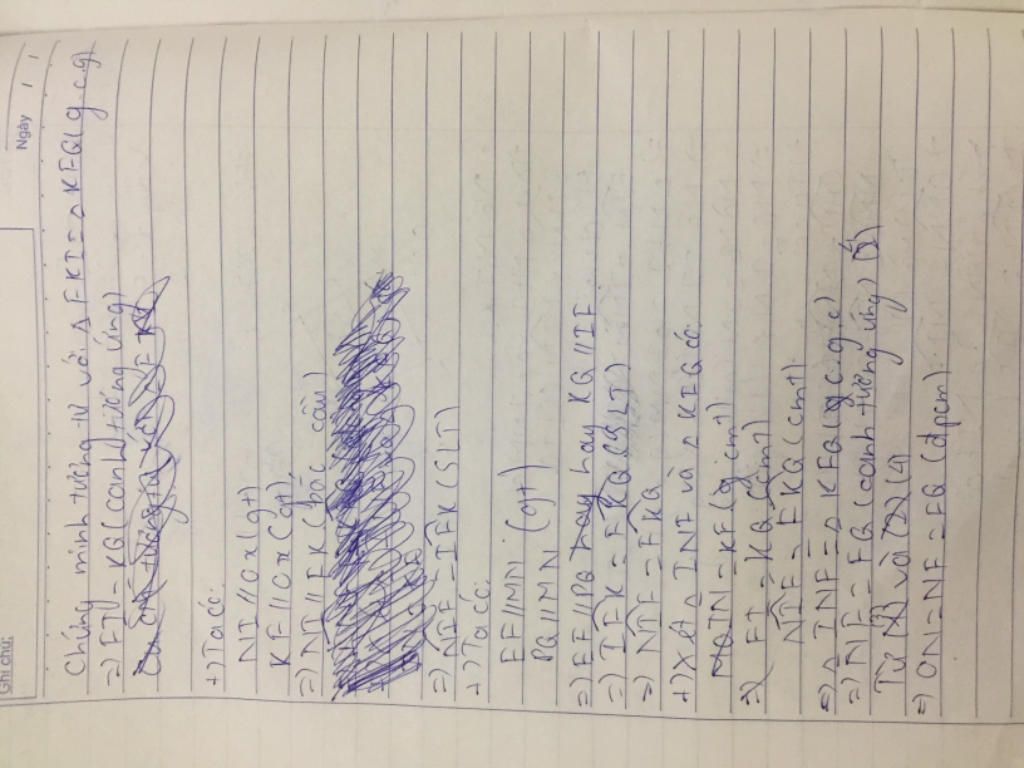 Ghi chú:
Ngày / /
Chứng minh tương tự với △ FKI = △ KFQ( g.c.g)
=) FI = KQ (cạnh tương ứng)
+) Ta có:
NI // Ox (gt)
KF // Ox (gt)
=) NI // FK ( bắc cầu)
=) NIF = IFK (SLT)
+) Ta có:
EF // MN (gt)
PQ // MN
=) EF // PQ hay KQ // IF
=) IFK = FKQ (SLT)
=) NIF = FKQ
+) Xét △ INF và △ KFQ có:
IN = KF (cmt)
FI = KQ (cmt)
NIF = FKQ (cmt)
=) △ INF = △ KFQ ( c.g.c)
=) NF = FQ (cạnh tương ứng)
Từ và (2) (4)
=) ON = NF = FQ (đpcm)